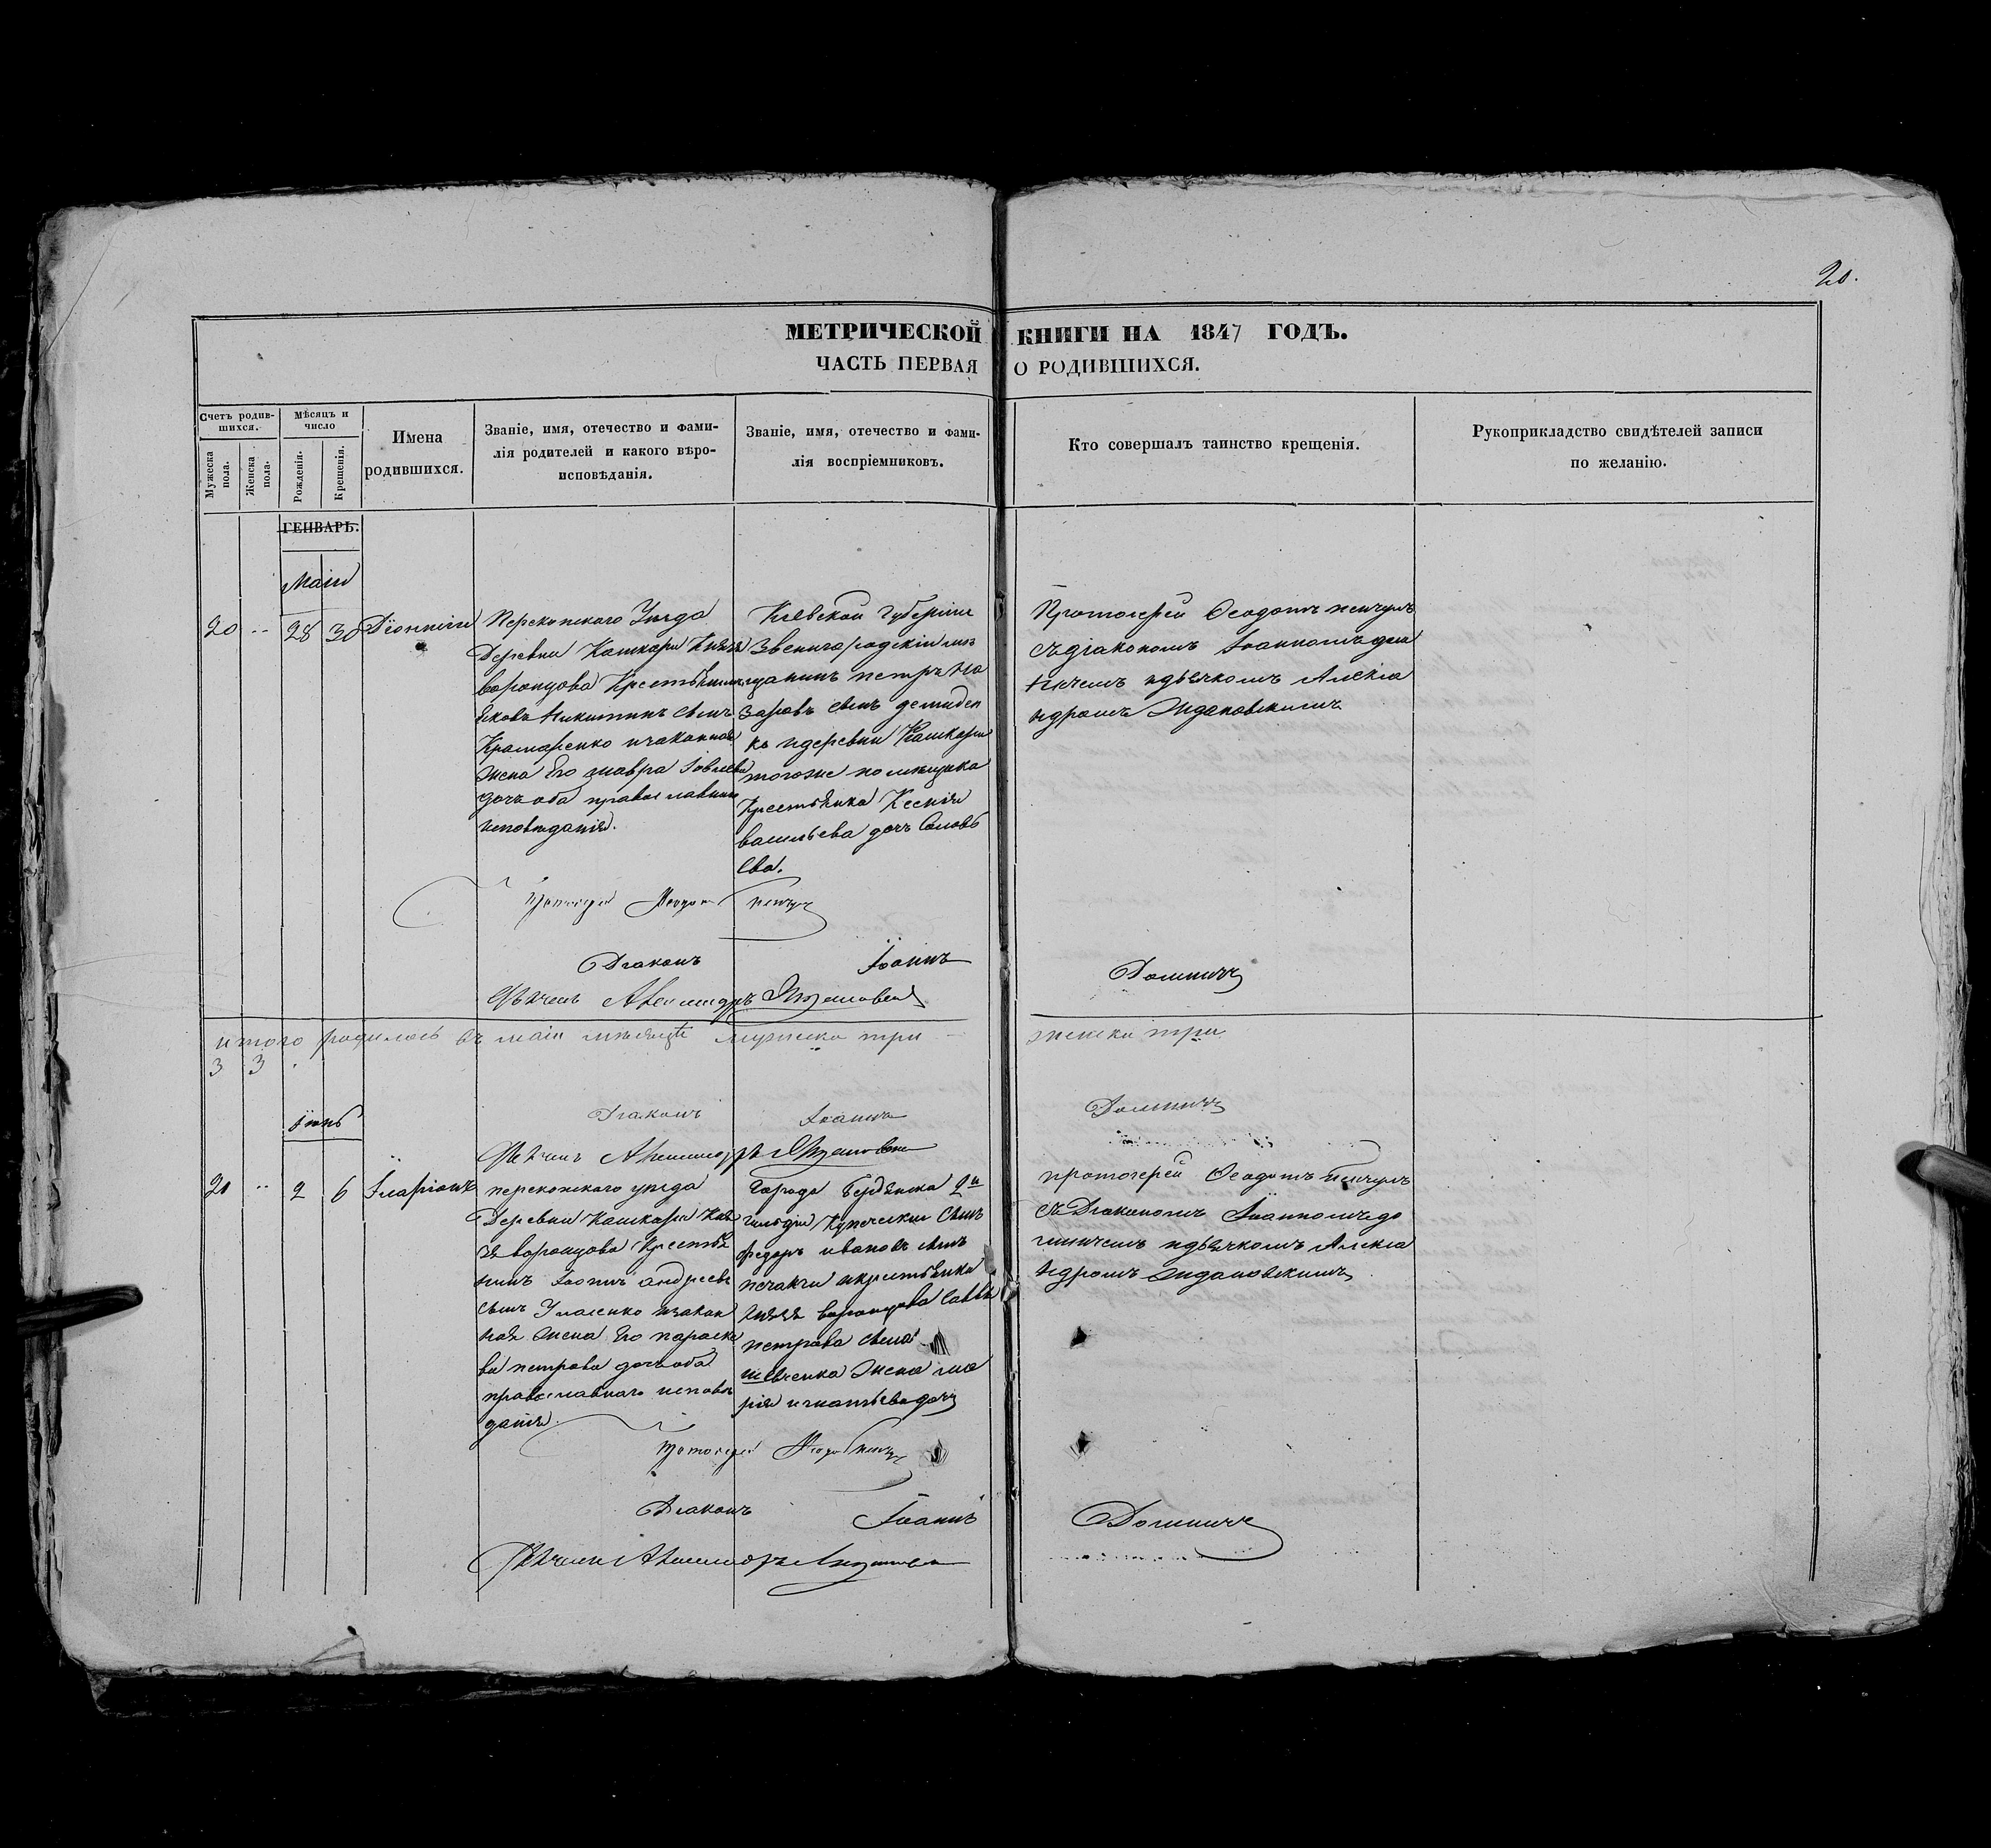 20.
МЕТРИЧЕСКОЙ КНИГИ НА 1847 ГОДЪ.
ЧАСТЬ ПЕРВАЯ О РОДИВШИХСЯ.
Счетъ родив-
шихся.
Мужеска
пола.
Женска
пола.
Мѣсяцъ и
число
Рожденія.
Крещенія.
Имена
родившихся.
Званіе, имя, отечество и фами-
лія родителей и какого вѣро-
исповѣданія.
Званіе, имя, отечество и фами-
лія воспріемниковъ.
Кто совершалъ таинство крещенія.
Рукоприкладство свидѣтелей записи
по желанію.
ГЕНВАРЬ.
Маій
20 -- 28 30 Діонисій
Перекопского Уѣзда
Деревни Кашкары Князя
Воронцова Крестьянинъ
Яковъ Никитинъ сынъ
Крамаренко изаконная
жена Его мавра Іовлева
дочь оба православнаго
исповѣданія.
Кіевской Губерніи
Звенигородскій мѣ
щанинъ петръ На
заровъ сынъ демиден
ко идеревни Кашкары
тогоже помѣщика
Крестьянка Ксенія
васильева дочь Соловь
ева.
Протоіерей Ѳеодотъ
съдіакономъ Іоанномъ дом
ничемъ идьячкомъ Алекса
ндромъ Ждановскимъ
Протоіерей Ѳеодотъ
Діаконъ Іоаннъ Домничъ
Дьячекъ Александръ Ждановскій
итого родилось въ маіи мѣсяцѣ мужеска три женска три
3 3
Діаконъ Іоаннъ Домничъ
Дьячекъ Александръ Ждановскій
іюнь
21 -- 2 6 Іларіонъ
перекопского уѣзда
Деревни Кашкары Кня
зя воронцова Крестья
нинъ Іоаннъ андреевъ
сынъ изакон
ная жена Его параске
ва петрова дочь оба
православнаго исповѣ
данія.
Города Бердянска 2й
гильдіи Купческій Сынъ
федоръ ивановъ сынъ
икрестьянина
Князя воронцова Саввы
петрова сына
шевченка жена ма
рія игнатьева дочь
протоіерей Ѳеодотъ
съ Діакономъ Іоанномъ до
мничемъ идьячкомъ Алекса
ндромъ Ждановскимъ
Протоіерей Ѳеодотъ
Діаконъ Іоаннъ Домничъ
Дьячекъ Александръ Ждановскій